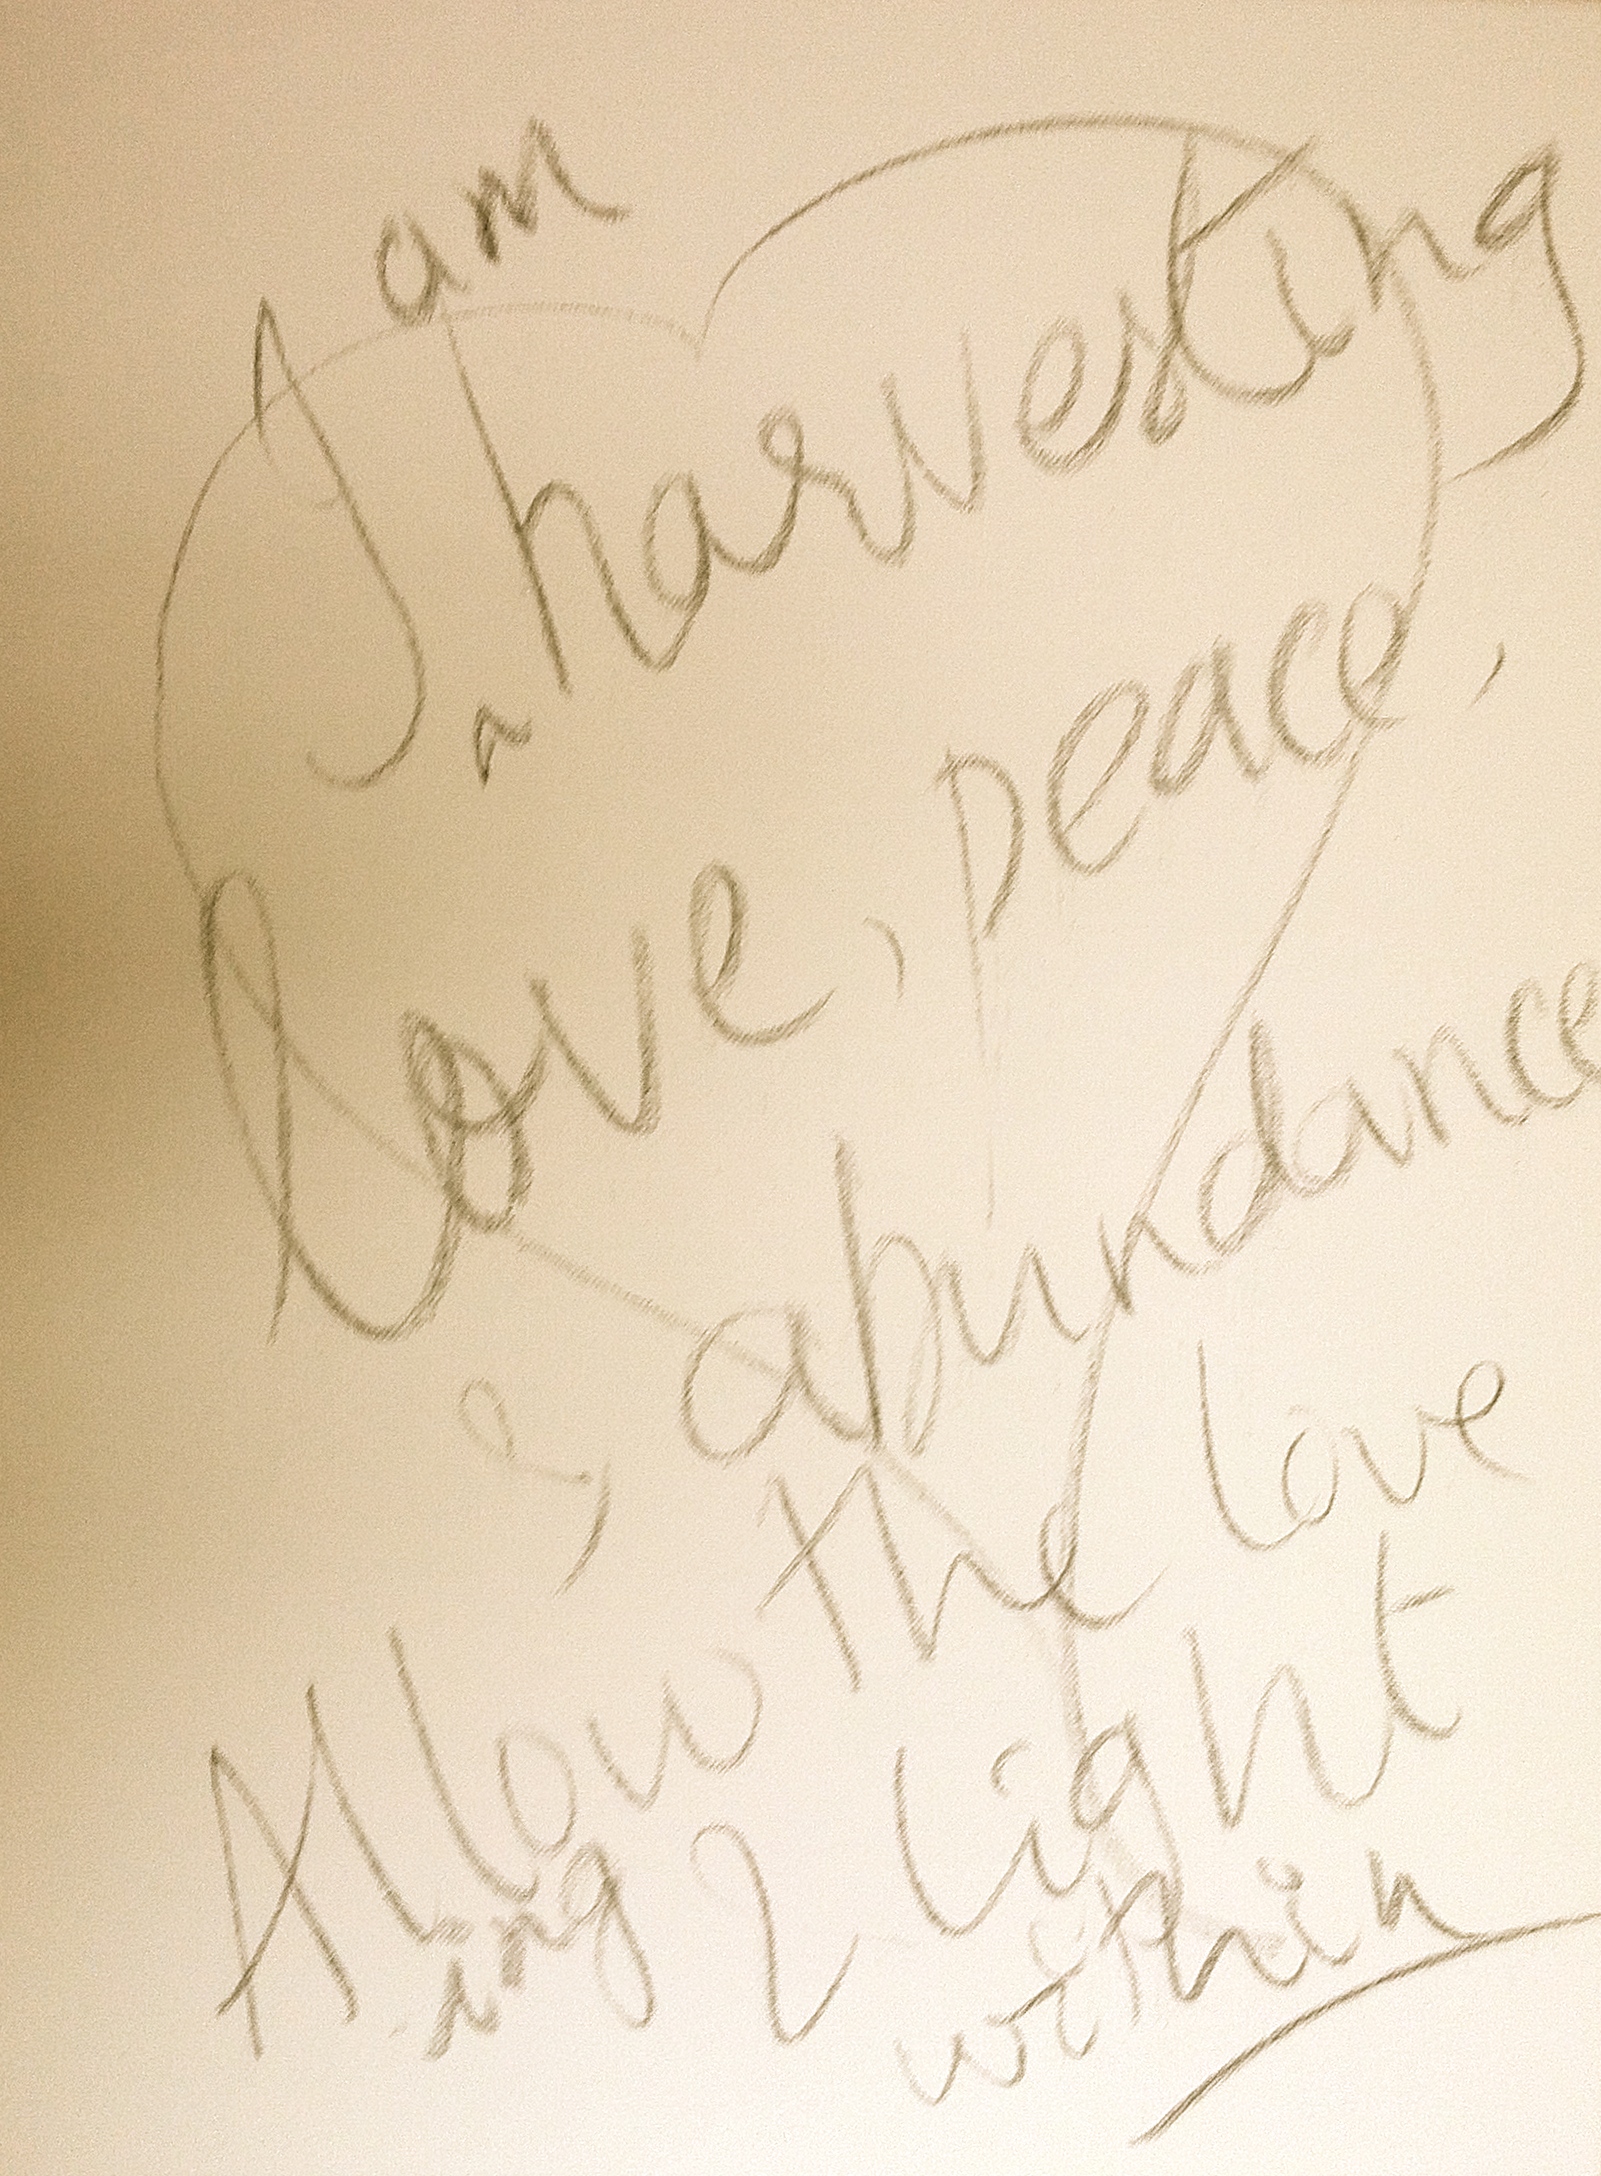 I am harvesting
love, peace,
& abundance
Allowing the love
& light
within